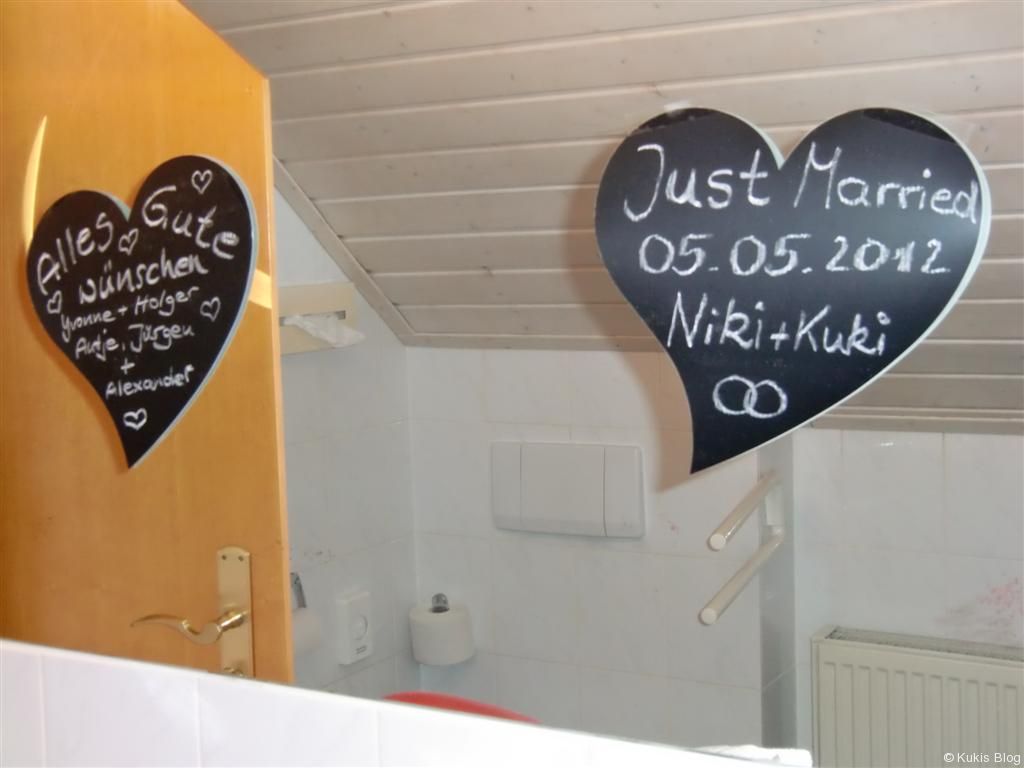 Alles Gute
wünschen
Yvonne + Holger
Antje, Jürgen
+
Alexander
Just Married
05.05.2012
Niki + Kuki
© Kukis Blog